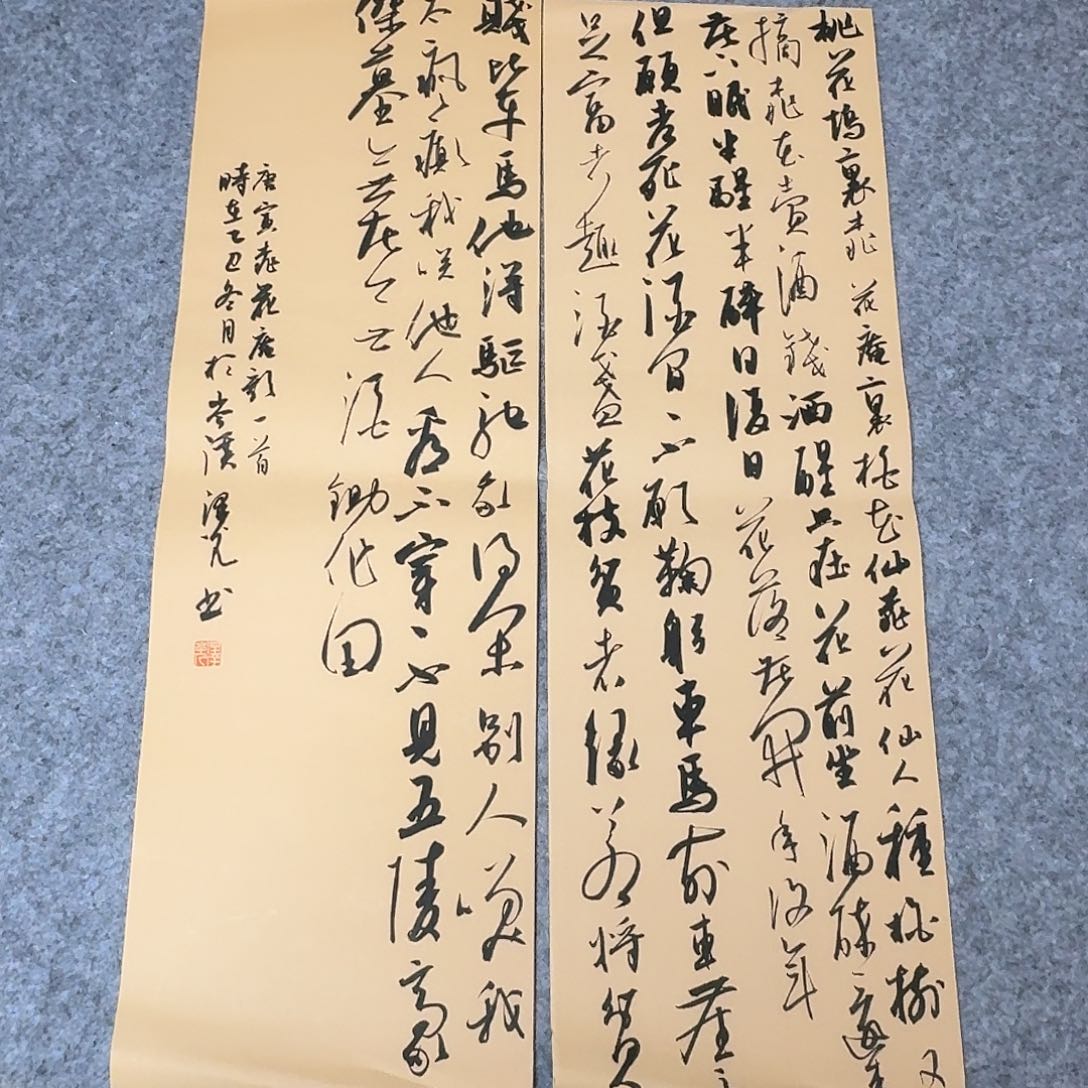 桃花塢裏桃花庵裏桃花仙桃花仙人種桃樹又
摘桃花賣酒錢酒醒只在花前坐酒醉還來
花下眠半醒半醉日復日花落花開年復年
但願老死花酒間不願鞠躬車馬前車塵馬
足富者趣酒盞花枝貧者緣若將貧
賤比車馬他得驅馳我得閑別人笑我
太瘋癲我笑他人看不穿不見五陵豪
傑墓無花無酒鋤作田
唐寅桃花庵歌一首
時在乙巳冬月於岑溪澤光书